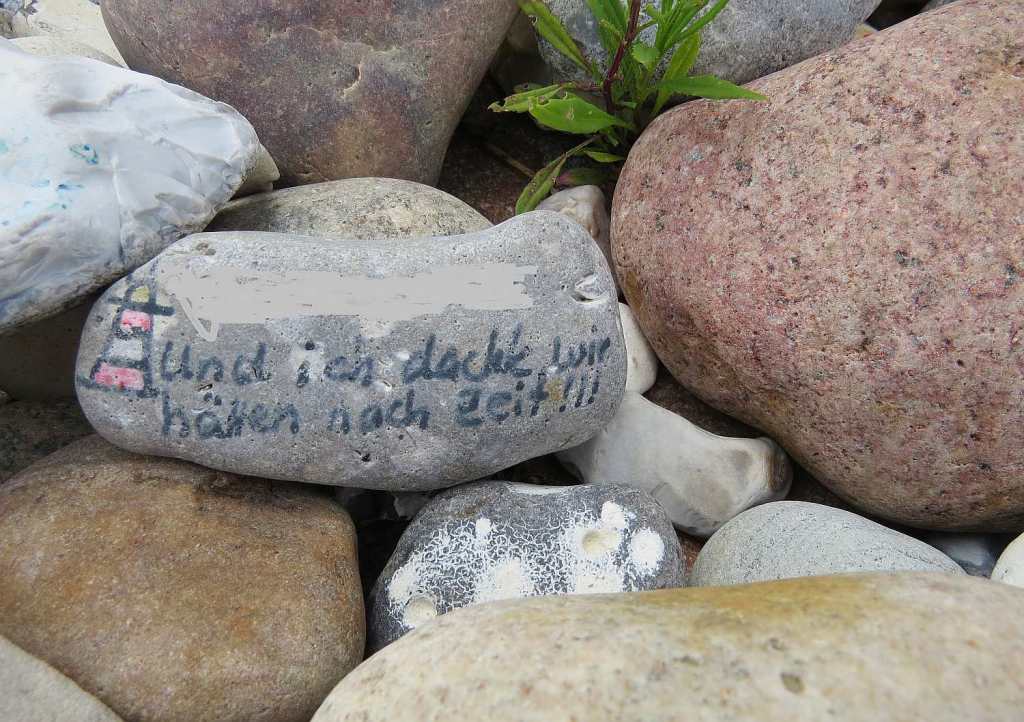 Und ich dachte wir
hätten noch Zeit!!!